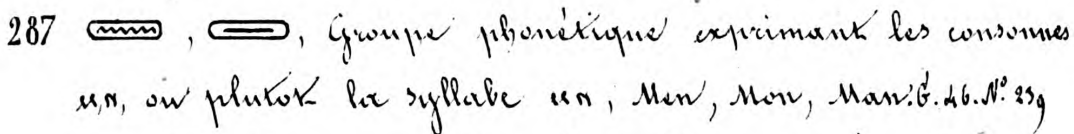 287 , , Groupe phonétique exprimant les consonnes
ⲙ,ⲛ, ou plutôt la syllabe ⲙⲛ, Men, Mon, Man. G. 46. N.º 239